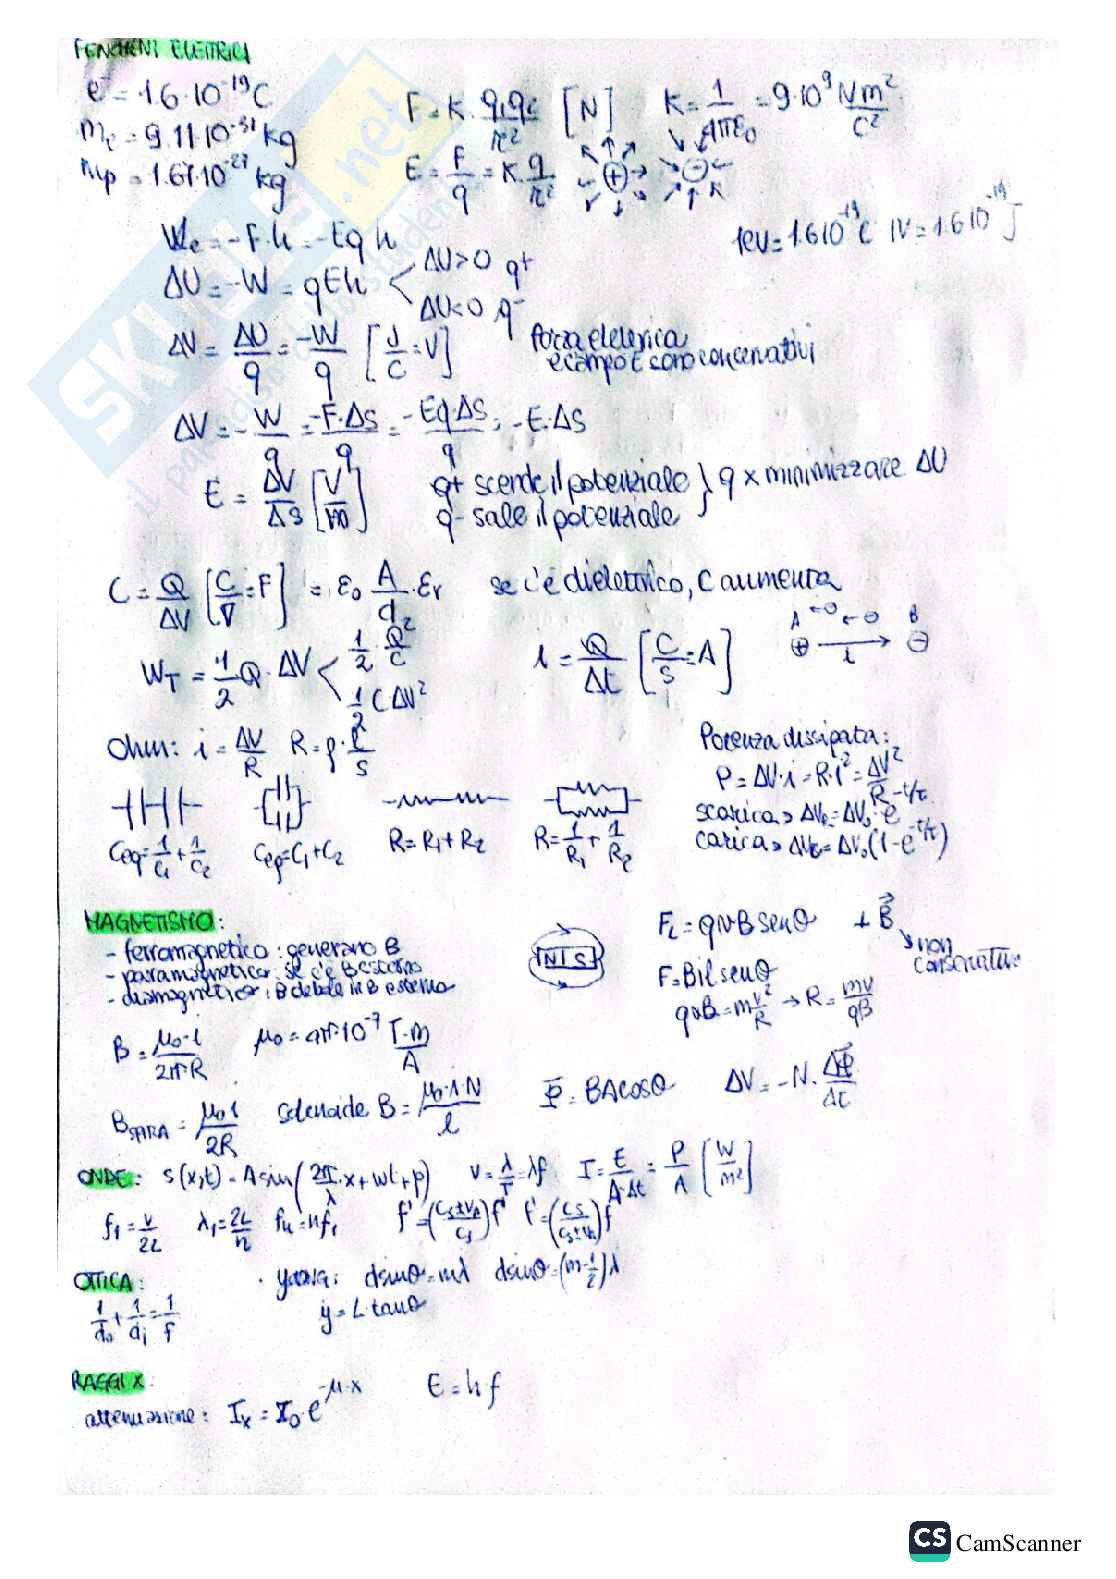 FENOMENI ELETTRICI
e⁻ = 1.6·10⁻¹⁹C
F = K · q₁q₂/r² [N]
K = 1/4πε₀ = 9·10⁹ Nm²/C²
me = 9.11·10⁻³¹ kg
mp = 1.67·10⁻²⁷ kg
E = F/q = K·q/r²
+ -
We = -F·h = -Eqh
1eV = 1.6·10⁻¹⁹C 1V = 1.6·10⁻¹⁹J
ΔU = -W = qEh < ΔU>0 q+
ΔU<0 q-
ΔV = ΔU/q = -W/q [J/C = V]
forza elettrica
e campo E sono conservativi
ΔV = -W/q = -F·ΔS/q = -Eq·ΔS/q = -E·ΔS
E = ΔV/ΔS [V/m]
q+ scende il potenziale } q x minimizzare ΔU
q- sale il potenziale
C = Q/ΔV [C/V = F] = ε₀ A/d · εr
se c'è dielettrico, C aumenta
WT = 1/2 Q·ΔV < 1/2 · Q²/C
1/2 CΔV²
i = Q/Δt [C/s = A]
A B
+ i -
Ohm: i = ΔV/R R = ρ·l/s
Potenza dissipata:
P = ΔV·i = R·i² = ΔV²/R
scarica > ΔVc = ΔV₀·e^-t/τ
carica > ΔVc = ΔV₀(1-e^-t/τ)
Ceq = 1/C₁ + 1/C₂
Ceq = C₁+C₂
R = R₁+R₂
R = 1/R₁ + 1/R₂
MAGNETISMO:
- ferromagnetico: generano B
- paramagnetico: se c'è B esterno
- diamagnetico: B debole in B esterno
N S
FL = qvB senθ ⊥ B⃗
↘ non conservativo
F = Bil senθ
qvB = mv²/R → R = mv/qB
B = μ₀·i/2πR
μ₀ = 4π·10⁻⁷ T·m/A
BSPIRA = μ₀i/2R
solenoide B = μ₀·i·N/l
Φ⃗ = BAcosθ
ΔV = -N·ΔΦ⃗/Δt
ONDE: s(x,t) = A sin(2π/λ·x+wt+φ) v = λ/T = λf I = E/A·Δt = P/A [W/m²]
f₁ = v/2L λ₁ = 2L/n fn = nf₁ f' = (cs±vo/cs)f f' = (cs/cs±vs)f
OTTICA:
1/do + 1/di = 1/f
· young: dsinθ = mλ dsinθ = (m-1/2)λ
y = L·tanθ
RAGGI X:
attenuazione: Ix = I₀·e^-μ·x
E = hf
SKUOLA.net
il paradiso dello studente
CS CamScanner